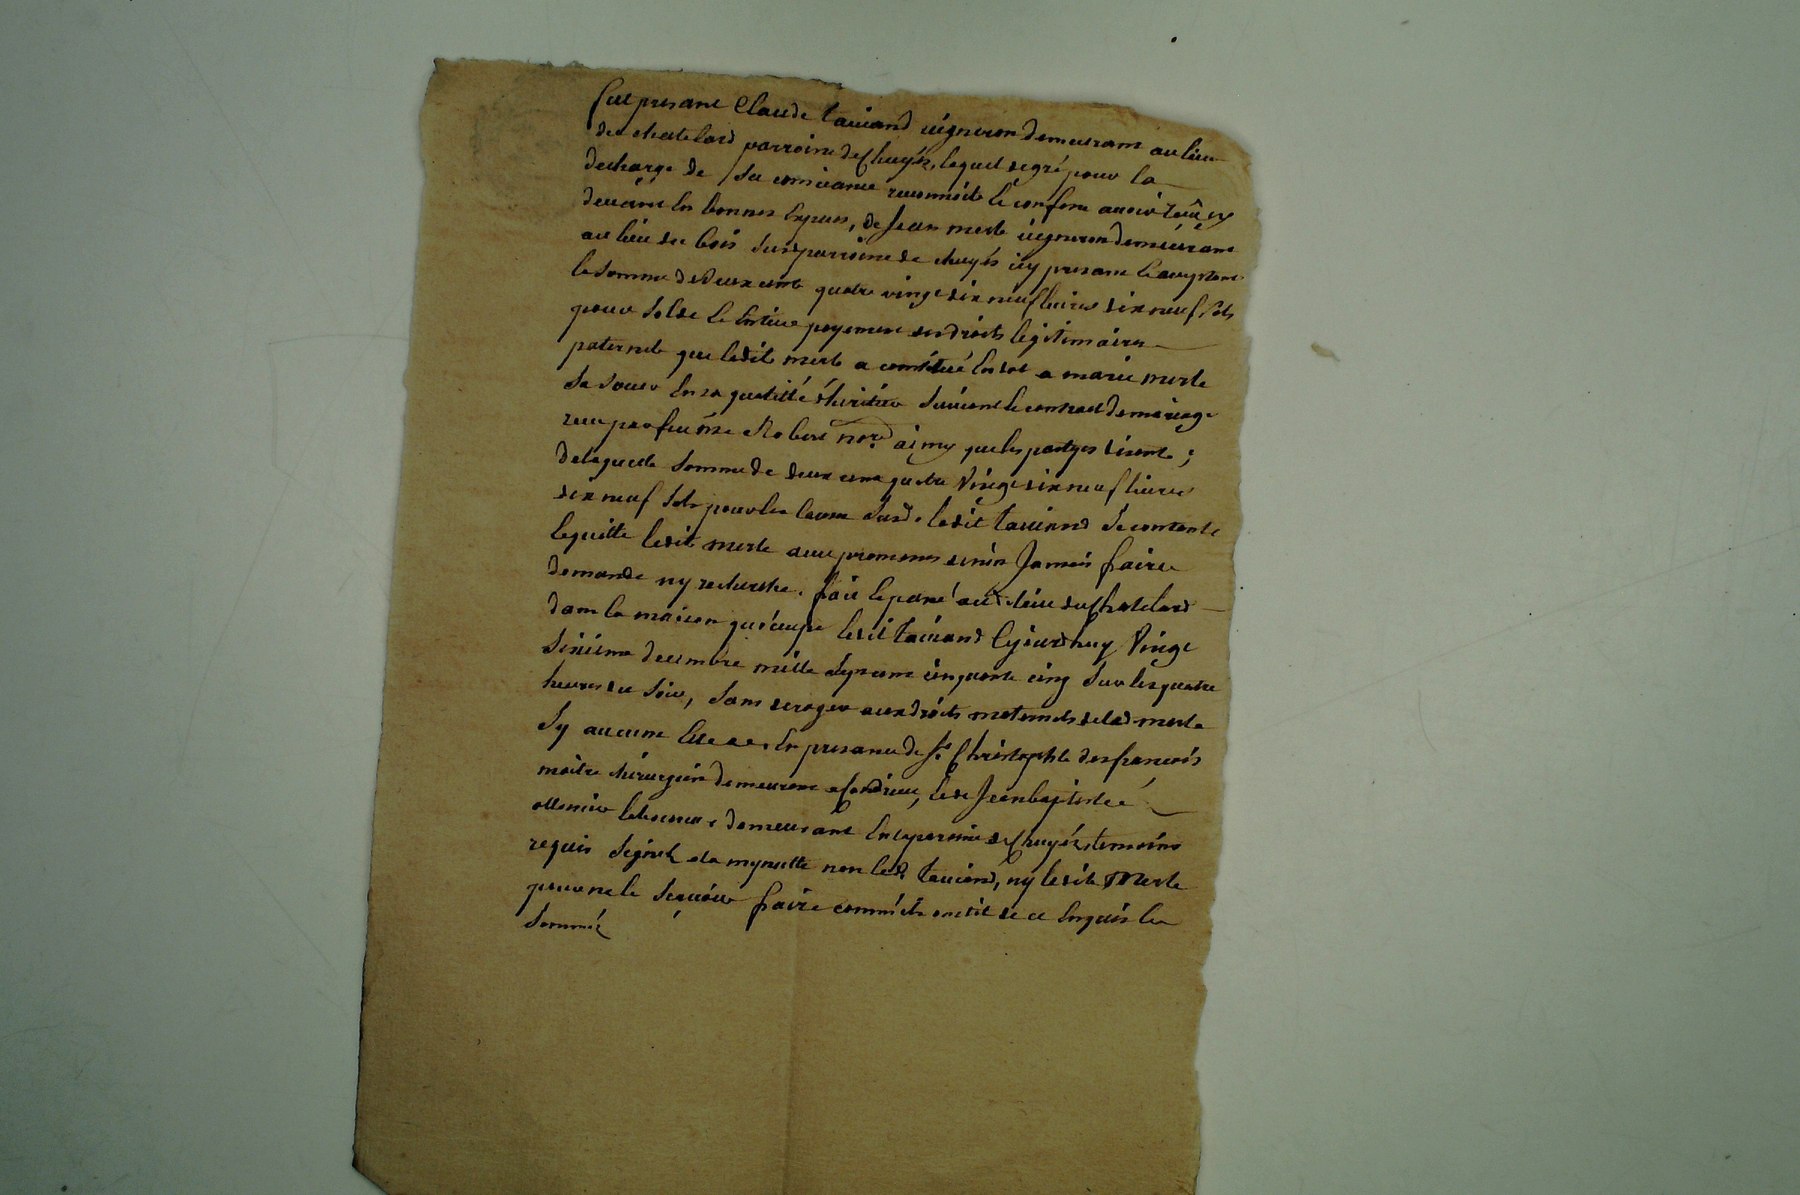 fut presant Claude taviand vigneron demeurant au lieu
du chatelard parroisse de Chuyés, lequel de gré pour la
decharge de sa consciance reconnoit le confesse avoir reçû cy
devant en bonnes especes, de Jean merle vigneron demeurant
au lieu du bois susd parroisse de chuyés icy presant le acceptant
la somme de deux cent quatre vingt dix neuf livres dix neuf sols
pour solde le entier payement des droits legitimaires
paternels que ledit merle a constitué en dot a marie merle
sa soeur en sa qualitté d'heritier suivant le contract de mariage
reçu par feu me Robert nore ainsy que les partyes disent;
de laquelle somme de deux cent quatre vingt dix neuf livres
dix neuf sols pour les causes susd. ledit taviand se contente
le quitte ledit merle avec promesses de n'en jamais faire
demande ny recherche. fait le passé audit lieu du Chatelard
dans la maison qu'occupe ledit taviand cejourdhuy vingt
sixième decembre mille sept cent cinquante cinq sur les quatre
heures du soir, sans deroger aux droits maternels de lad merle
sy aucuns elle a. en presance de sr Christophle desfrancois
maitre chirurgien demeurant a Condrieu, le de Jean baptiste
laboureur demeurant en la parroisse de Chuyés, temoins
requis signés a la mynutte non led taviand, ny ledit Merle
pour ne le sçavoir faire comme ils ont dit de ce enquis le
sommés